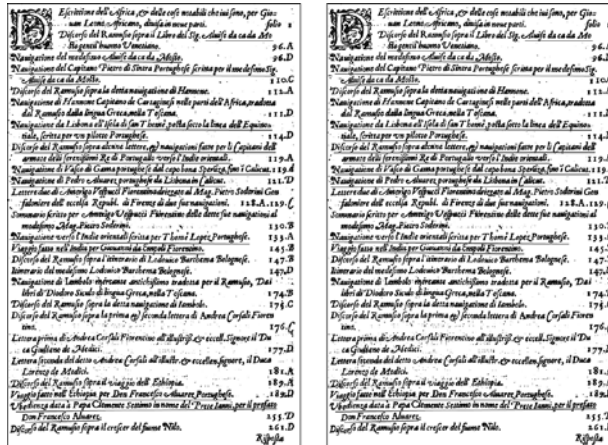 DEscrittione dell'Africa, & delle cose notabili che iui sono, per Gio-
uan Leone Africano, diuisa in noue parti. folio 1
Discorso del Ramusio sopra il Libro del Sig. Aluise da ca da Mo
sto gentil'huomo Venetiano. 96.A
Nauigatione del medesimo Aluise da ca da Mosto. 96.D
Nauigatione del Capitano Pietro di Sintra Portughese scritta per il medesimo Sig.
Aluise da ca da Mosto. 110.C
Discorso del Ramusio sopra la detta nauigatione di Hannone. 111.A
Nauigatione di Hannone Capitano de Cartaginesi nelle parti dell'Africa, tradotta
dal Ramusio dalla lingua Greca, nella Toscana. 111.D
Nauigatione da Lisbona all'isola di san Thomé, posta sotto la linea dell'Equino-
tiale, scritta per un pilotto Portughese. 114.D
Discorso del Ramusio sopra alcune lettere, & nauigationi fatte per li Capitani dell'
armate delli serenissimi Re di Portugallo verso l'Indie orientali. 119.A
Nauigatione di Vasco di Gama portughese dal capo bona Speranza, fino i Calicut. 119.d
Nauigatione di Pedro Aluarez portughese da Lisbona in Calicut. 121.D
Lettere due di Amerigo Vespucci Fiorentino drizzate al Mag. Pietro Soderini Gon
faloniere dell'eccelsa Republ. di Firenze di due sue nauigationi. 128.A. 129.C
Sommario scritto per Amerigo Vespucci Fiorentino delle dette sue nauigationi al
medesimo Mag. Pietro Soderini. 130.B
Nauigatione verso l'Indie orientali scritta per Thomé Lopez Portughese. 133.A
Viaggio fatto nell'India per Giouanni da Empoli Fiorentino. 145.B
Discorso del Ramusio sopra l'itinerario di Lodouico Barthema Bolognese. 147.B
Itinerario del medesimo Lodouico Barthema Bolognese. 147.D
Nauigatione di Iambolo mercante antichissimo tradotta per il Ramusio, Dai
libri di Diodoro Siculo di lingua Greca, nella Toscana. 174.B
Discorso del Ramusio sopra la detta nauigatione di Iambolo. 174.C
Discorso del Ramusio sopra la prima & seconda lettera di Andrea Corsali Fioren
tino. 176.C
Lettera prima di Andrea Corsali Fiorentino all'illustriss. & eccell. Signore il Du
ca Giuliano de Medici. 177.D
Lettera seconda del detto Andrea Corsali all'illustr. & eccellen. signore, il Duca
Lorenzo de Medici. 181.A
Discorso del Ramusio sopra il viaggio dell'Ethiopia. 189.A
Viaggio fatto nell'Ethiopia per Don Francesco Aluarez Portughese. 189.D
Vbedienza data à Papa Clemente Settimo in nome del Prete Ianni, per il prefato
Don Francesco Aluarez. 255.D
Discorso del Ramusio sopra il crescer del fiume Nilo. 261.D
Risposta
DEscrittione dell'Africa, & delle cose notabili che iui sono, per Gio-
uan Leone Africano, diuisa in noue parti. folio
Discorso del Ramusio sopra il Libro del Sig. Aluise da ca da Mo
sto gentil'huomo Venetiano. 96.
Nauigatione del medesimo Aluise da ca da Mosto. 96.
Nauigatione del Capitano Pietro di Sintra Portughese scritta per il medesimo Sig.
Aluise da ca da Mosto. 110.
Discorso del Ramusio sopra la detta nauigatione di Hannone. 111.
Nauigatione di Hannone Capitano de Cartaginesi nelle parti dell'Africa, tradotta
dal Ramusio dalla lingua Greca, nella Toscana. 111.
Nauigatione da Lisbona all'isola di san Thomé, posta sotto la linea dell'Equino-
tiale, scritta per un pilotto Portughese. 114.
Discorso del Ramusio sopra alcune lettere, & nauigationi fatte per li Capitani dell'
armate delli serenissimi Re di Portugallo verso l'Indie orientali. 119.
Nauigatione di Vasco di Gama portughese dal capo bona Speranza, fino i Calicut. 119.
Nauigatione di Pedro Aluarez portughese da Lisbona in Calicut. 121.
Lettere due di Amerigo Vespucci Fiorentino drizzate al Mag. Pietro Soderini Gon
faloniere dell'eccelsa Republ. di Firenze di due sue nauigationi. 128.A. 129.
Sommario scritto per Amerigo Vespucci Fiorentino delle dette sue nauigationi al
medesimo Mag. Pietro Soderini. 130.
Nauigatione verso l'Indie orientali scritta per Thomé Lopez Portughese. 133.
Viaggio fatto nell'India per Giouanni da Empoli Fiorentino. 145.
Discorso del Ramusio sopra l'itinerario di Lodouico Barthema Bolognese. 147.
Itinerario del medesimo Lodouico Barthema Bolognese. 147.
Nauigatione di Iambolo mercante antichissimo tradotta per il Ramusio, Dai
libri di Diodoro Siculo di lingua Greca, nella Toscana. 174.
Discorso del Ramusio sopra la detta nauigatione di Iambolo. 174.
Discorso del Ramusio sopra la prima & seconda lettera di Andrea Corsali Fioren
tino. 176.
Lettera prima di Andrea Corsali Fiorentino all'illustriss. & eccell. Signore il Du
ca Giuliano de Medici. 177.
Lettera seconda del detto Andrea Corsali all'illustr. & eccellen. signore, il Duca
Lorenzo de Medici. 181.
Discorso del Ramusio sopra il viaggio dell'Ethiopia. 189.
Viaggio fatto nell'Ethiopia per Don Francesco Aluarez Portughese. 189.
Vbedienza data à Papa Clemente Settimo in nome del Prete Ianni, per il prefato
Don Francesco Aluarez. 255.
Discorso del Ramusio sopra il crescer del fiume Nilo. 261.
Risposta